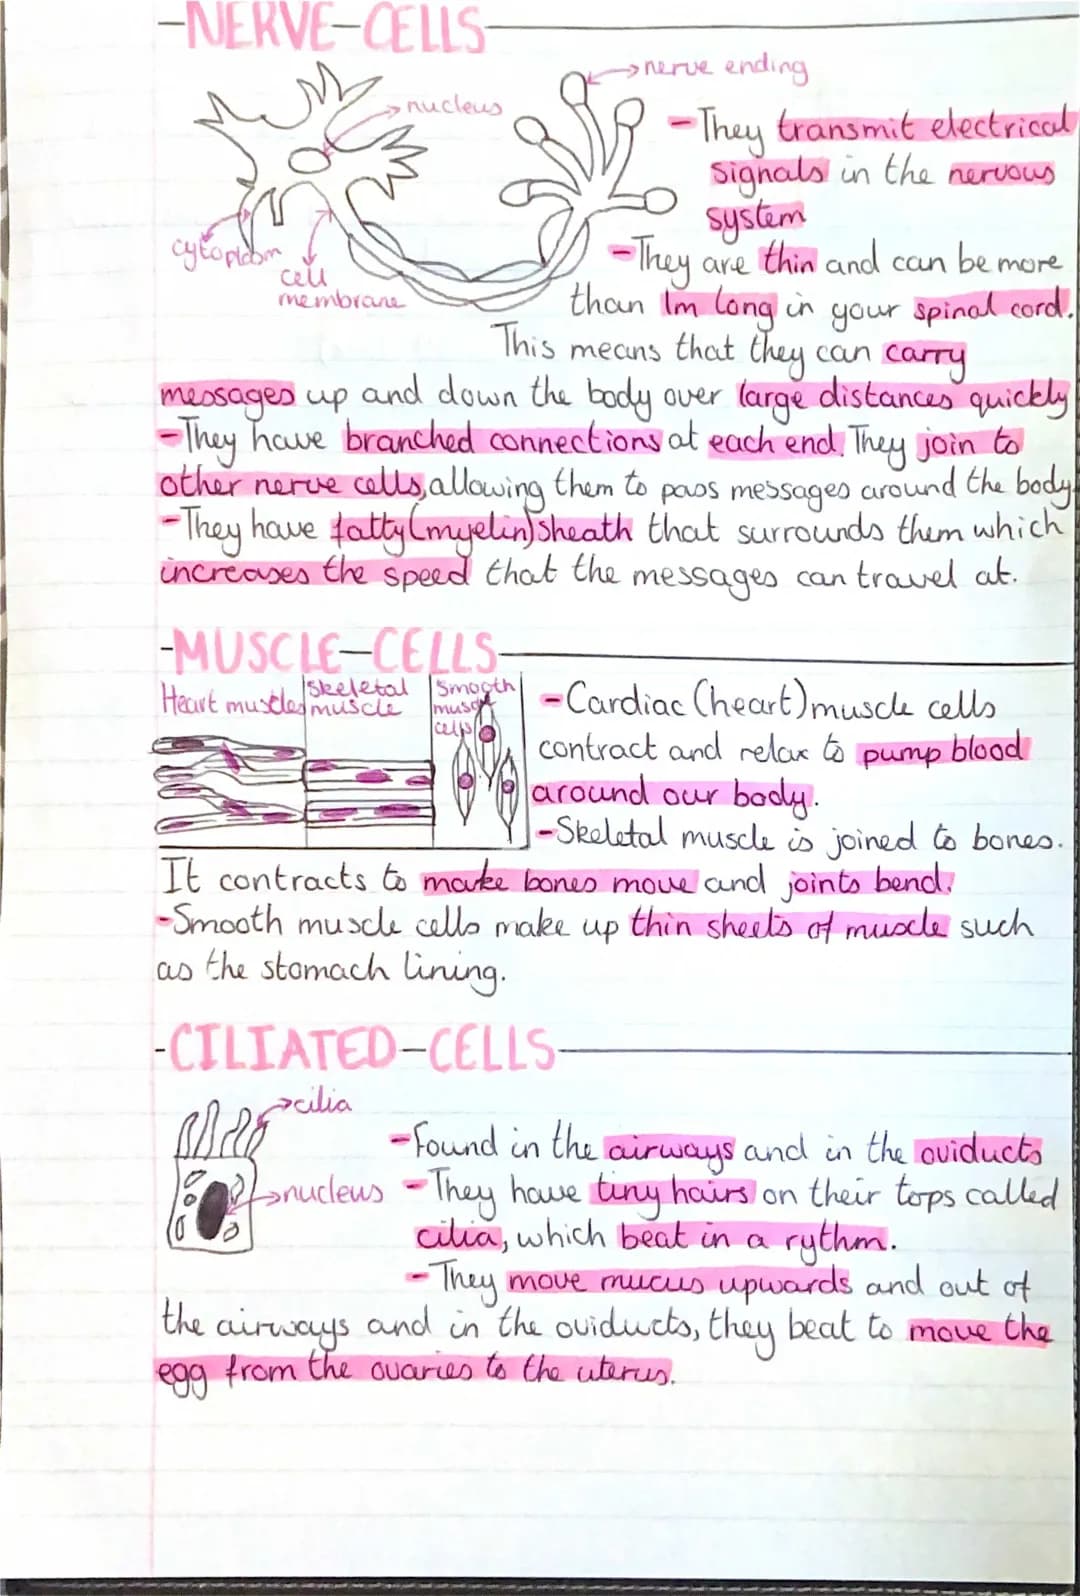 -NERVE-CELLS
nerve ending
nucleus
cytoplasm
cell
membrane
-They transmit electrical
signals in the nervous
system
-They are thin and can be more
than 1m long in your spinal cord.
This means that they can carry
messages up and down the body over large distances quickly
-They have branched connections at each end. They join to
other nerve cells, allowing them to pass messages around the body
-They have fatty (myelin) sheath that surrounds them which
increases the speed that the messages can travel at.
-MUSCLE-CELLS
Heart muscles
Skeletal
muscle
Smooth
muscle
cells
-Cardiac (heart) muscle cells
contract and relax to pump blood
around our body.
-Skeletal muscle is joined to bones.
It contracts to make bones move and joints bend.
-Smooth muscle cells make up thin sheets of muscle such
as the stomach lining.
-CILIATED-CELLS
cilia
nucleus
-Found in the airways and in the oviducts
-They have tiny hairs on their tops called
cilia, which beat in a rythm.
-They move mucus upwards and out of
the airways and in the oviducts, they beat to move the
egg from the ovaries to the uterus.